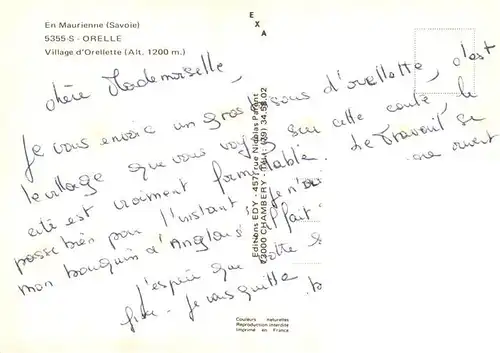 En Maurienne (Savoie)
5355-S - ORELLE
Village d'Orellette (Alt. 1200 m.)
EXA
Chère Mademoiselle,
Je vous envoie un gros sous d'orellette, c'est
le village que vous voyez sur cette carte, le
cité est vraiment formidable. Le Travail se
passe bien pour l'instant je n'ai ouvert
mon bouquin d'Anglais il fait
J'espère que votre
fixe. je vous quitte
Editions EDY - 457, rue Nicolas Parent
73000 CHAMBERY - Tél. : (79) 34.58.02
Couleurs naturelles
Reproduction interdite
Imprimé en France